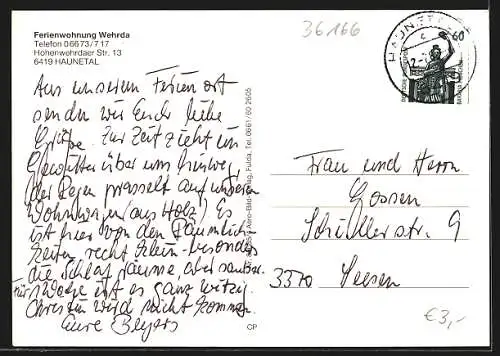 Ferienwohnung Wehrda
Telefon 06673/717
Hohenwehrdaer Str. 13
6419 HAUNETAL
36166
60
HAUNETAL
Aus unserem Ferienort
senden wir Euch liebe
Grüße. Zur Zeit zieht ein
Gewitter über uns hinweg,
der Regen prasselt auf unseren
Wohnwagen (aus Holz)! Es
ist hier von den Räumlich-
keiten recht klein - besonders
die Schlafräume, aber sauber.
Für 1 Woche ist es ganz witzig.
Christin wird nicht kommen.
Eure Beyers
Aero-Bild-Verlag, Fulda, Tel. 0661/60 26 05
CP
Frau und Herrn
Goosen
Schüllerstr. 9
3370 Seesen
€ 3,-